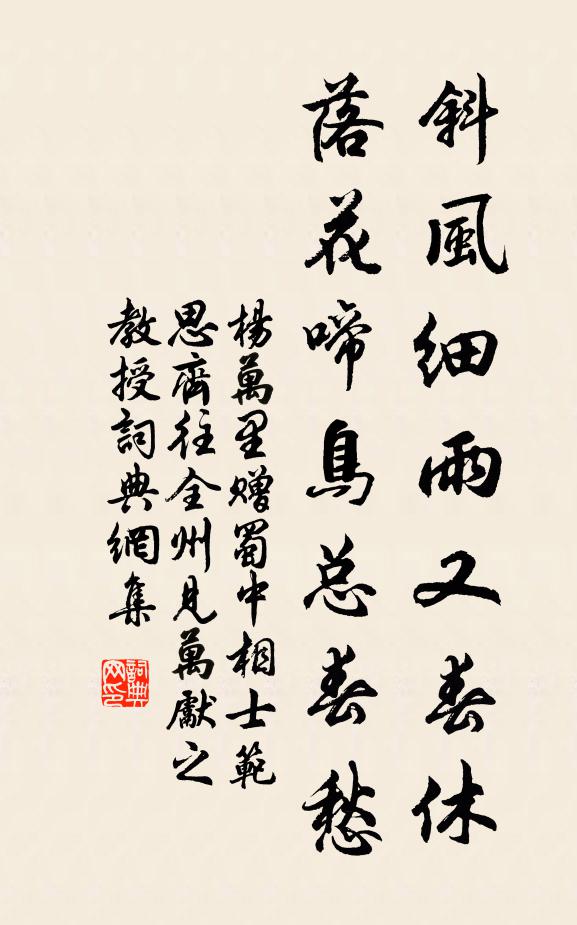 斜風細雨又春休
落花啼鳥总春愁
楊萬里贈蜀中相士範
思齊往全州見萬獻之
教授詞典網集
詞典
网印